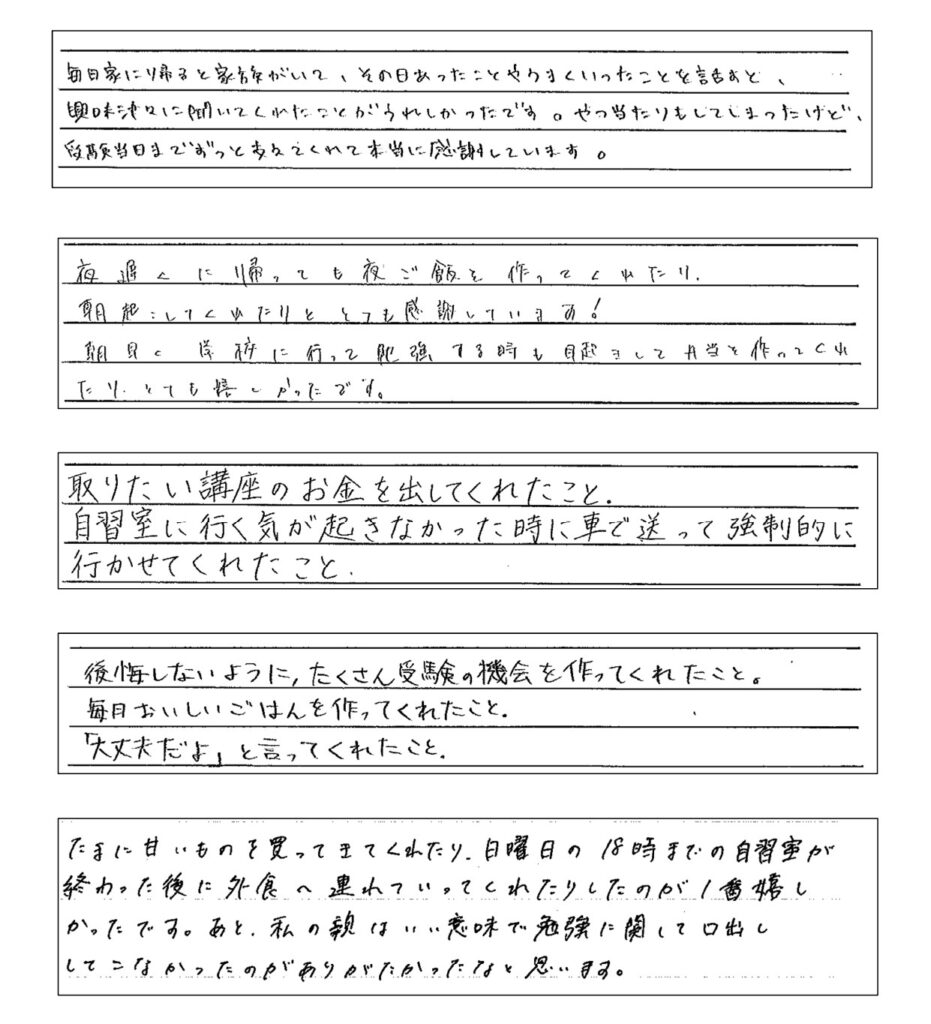 毎日家に帰ると家族がいて、その日あったことやうまくいったことを話すと、
興味津々に聞いてくれたことがうれしかったです。やつ当たりもしてしまったけど、
受験当日までずっと支えてくれて本当に感謝しています。
夜遅くに帰っても夜ご飯を作ってくれたり、
朝起こしてくれたりととても感謝しています!
朝早く学校に行って勉強する時も早起きして弁当を作ってくれ
たり、とても嬉しかったです。
取りたい講座のお金を出してくれたこと.
自習室に行く気が起きなかった時に車で送って強制的に
行かせてくれたこと.
後悔しないように,たくさん受験の機会を作ってくれたこと。
毎日おいしいごはんを作ってくれたこと.
「大丈夫だよ」と言ってくれたこと.
たまに甘いものを買ってきてくれたり、日曜日の18時までの自習室が
終わった後に外食へ連れていってくれたりしたのが1番嬉し
かったです。あと、私の親はいい意味で勉強に関して口出し
してこなかったのがありがたかったなと思います。